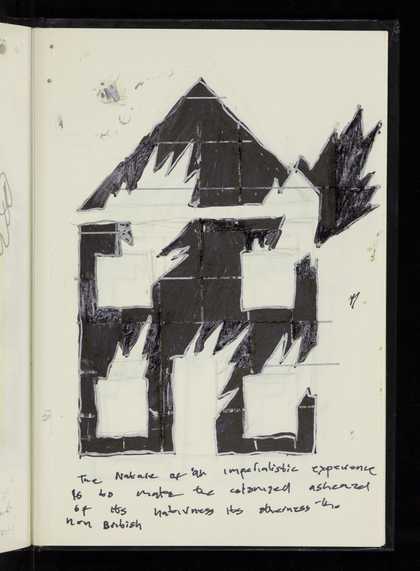 The Nature of an imperialistic experience
is to make the colonized ashamed
of its nativness its otherness
non British